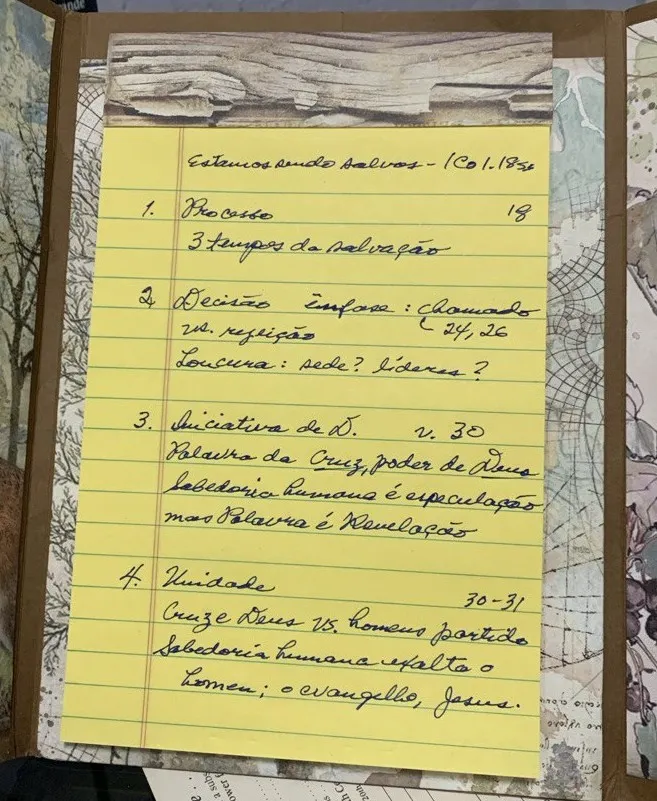 Estamos sendo salvos - 1 Co 1.18ss
1. Processo 18
3 tempos da salvação
2. Decisão ênfase: chamado
vs. rejeição 24, 26
Loucura: sede? líderes?
3. Iniciativa de D. v. 30
Palavra da Cruz, poder de Deus
Sabedoria humana é especulação
mas Palavra é Revelação
4. Unidade 30-31
Cruz e Deus vs. homens partido
Sabedoria humana exalta o
homem; o evangelho, Jesus.